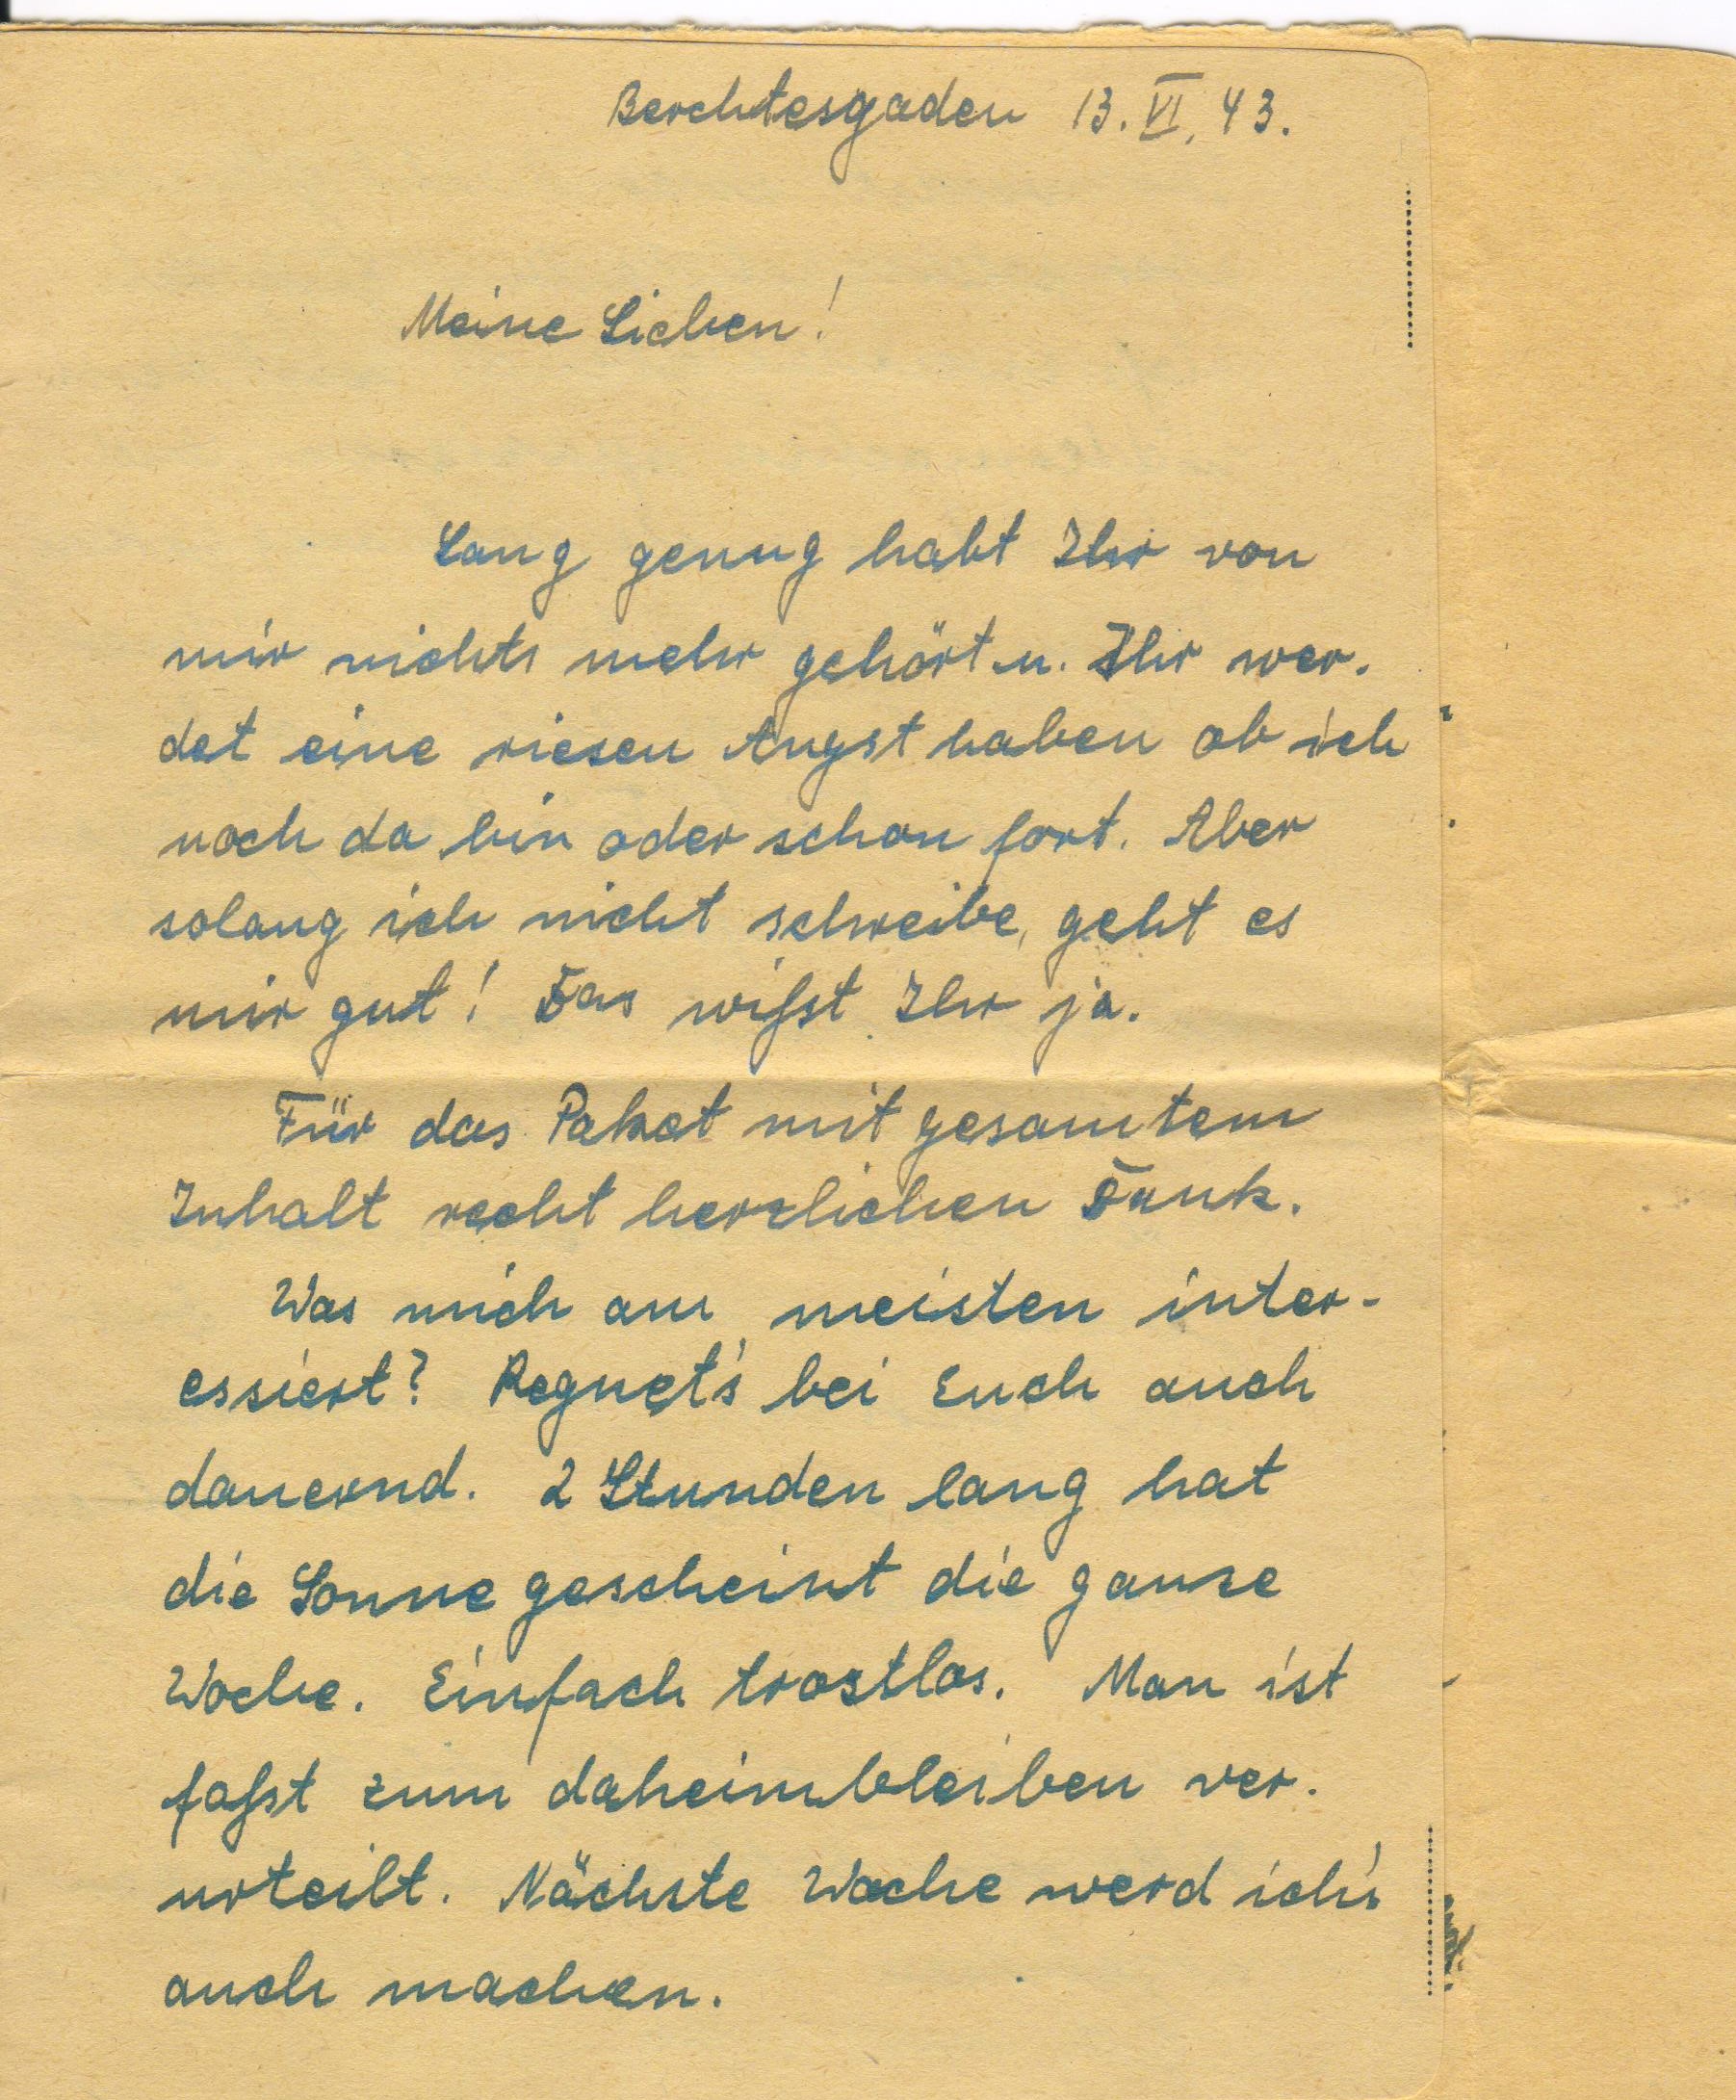 Berchtesgaden 13. VI. 43.
Meine Lieben!
Lang genug habt Ihr von
mir nichts mehr gehört u. Ihr wer-
det eine riesen Angst haben ob ich
noch da bin oder schon fort. Aber
solang ich nicht schreibe, geht es
mir gut! Das wißst Ihr ja.
Für das Paket mit gesamtem
Inhalt recht herzlichen Dank.
Was mich am meisten inter-
essiert? Regnet's bei Euch auch
dauernd. 2 Stunden lang hat
die Sonne gescheint die ganze
Woche. Einfach trostlos. Man ist
faßst zum daheimbleiben ver-
urteilt. Nächste Woche werd ich's
auch machen.